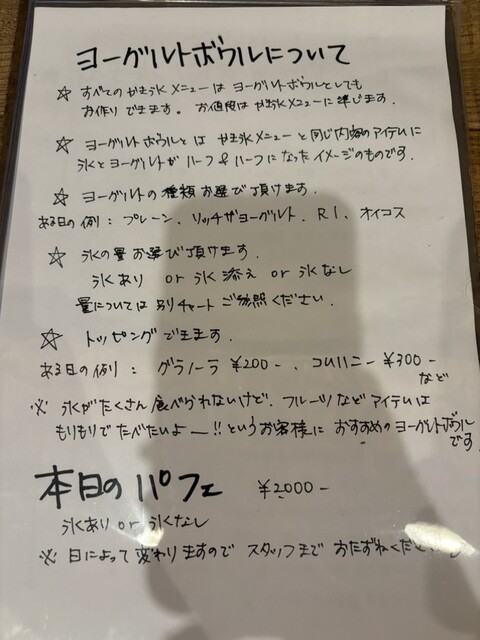 ヨーグルトボウルについて
☆ すべてのかき氷メニューは ヨーグルトボウルとしても
お作りできます。お値段は かき氷メニューに準じます.
☆ ヨーグルトボウルとは かき氷メニューと同じ内容のアイテムに
氷とヨーグルトが ハーフ&ハーフになったイメージのものです.
☆ ヨーグルトの種類お選び頂けます.
ある日の例 : プレーン、リッチギヨーグルト、R1、オイコス
☆ 氷の量お選び頂けます.
氷あり or 氷添え or 氷なし
量については 別チャートご参照ください.
☆ トッピングできます.
ある日の例 : グラノーラ ¥200-、コムハニー ¥300-
など
※ 氷がたくさん食べられないけど、フルーツなどアイテムは
もりもりでたべたいよー!!というお客様に おすすめのヨーグルトボウル
です.
本日のパフェ ¥2,000-
氷あり or 氷なし
※ 日によって変わりますので スタッフまで おたずねくだ